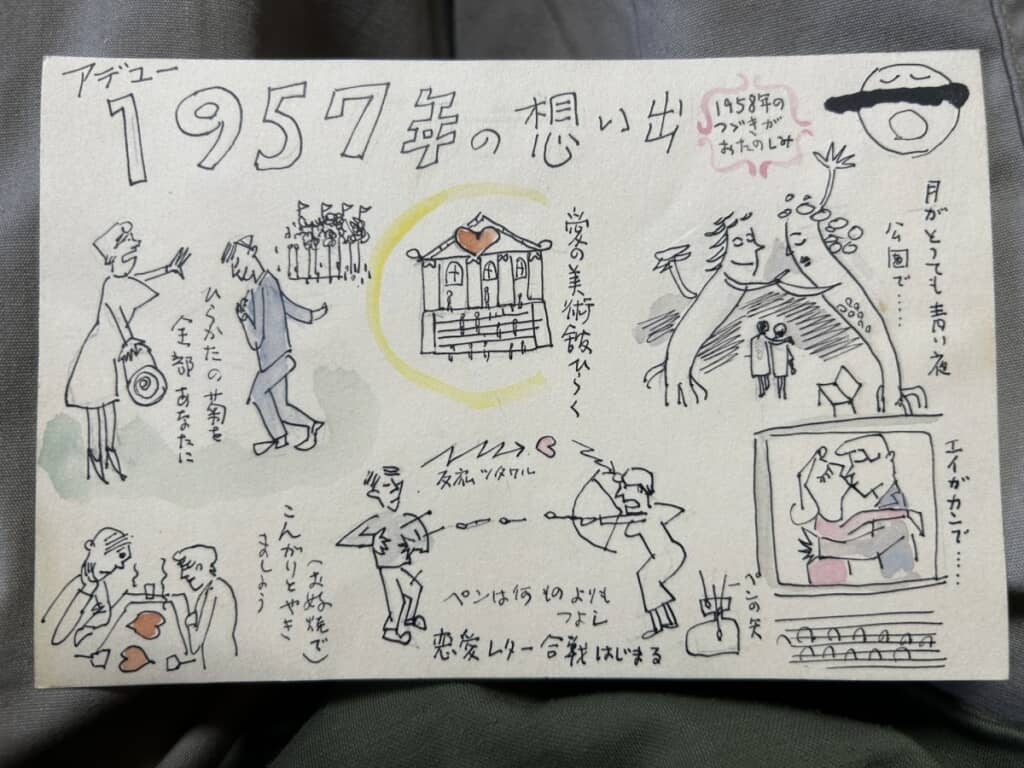 アデュー
1957年の想い出
1958年の
つづきが
おたのしみ
ひらかたの菊を
全部あなたに
愛の美術館ひらく
月がとっても青い夜
公園で……
エイガカンで……
ツタワル
ペンは何ものよりも
つよし
恋愛レター合戦はじまる
ペンの矢
こんがりとやき
ましょう
(お好焼で)